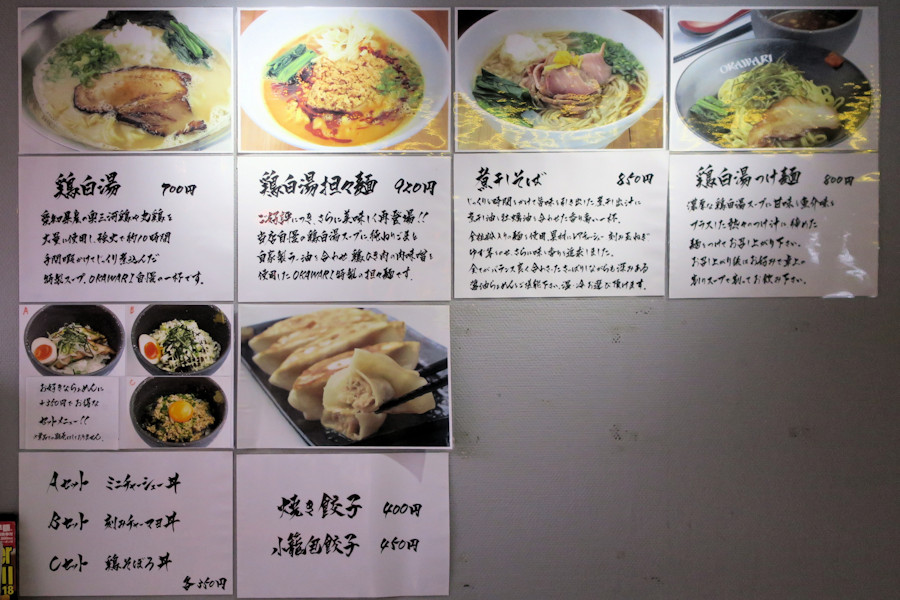 鶏白湯 700円
愛知県産の奥三河鶏や丸鶏を
大量に使用し、強火で約10時間
手間暇かけじっくり煮込んだ
特製スープ。OKAWARI自慢の一杯です。
鶏白湯担々麺 920円
ご好評につき、さらに美味しく再登場!!
当店自慢の鶏白湯スープに練りごまと
自家製ラー油を合わせ 鶏ひき肉の肉味噌を
使用したOKAWARI特製の担々麺です。
煮干しそば 850円
じっくり時間をかけて旨味を引き出した煮干出汁に
煮干油と
全粒粉入りの麺を使用、具材にレアチャーシュー 刻み玉ねぎ
ゆず等をのせ、さらに味と香りを追求しました。
全てがバランス良く合わさったさっぱりしながらも深みある
醤油らぁめんをご堪能下さい。温・冷お選び頂けます。
鶏白湯つけ麺 800円
濃厚な鶏白湯スープに甘味と酸味を
プラスした熱々のつけ汁に極めた
麺をつけてお召し上がり下さい。
お召し上がり後にはお好みで卓上の
割りスープで割ってお飲み下さい。
OKAWARI
A
B
C
お好きならぁめんに
+350円でお得な
セットメニュー!!
Aセット ミニチャーシュー丼
Bセット 刻みチャーマヨ丼
Cセット 鶏そぼろ丼
各350円
焼き餃子 400円
小籠包餃子 450円
18